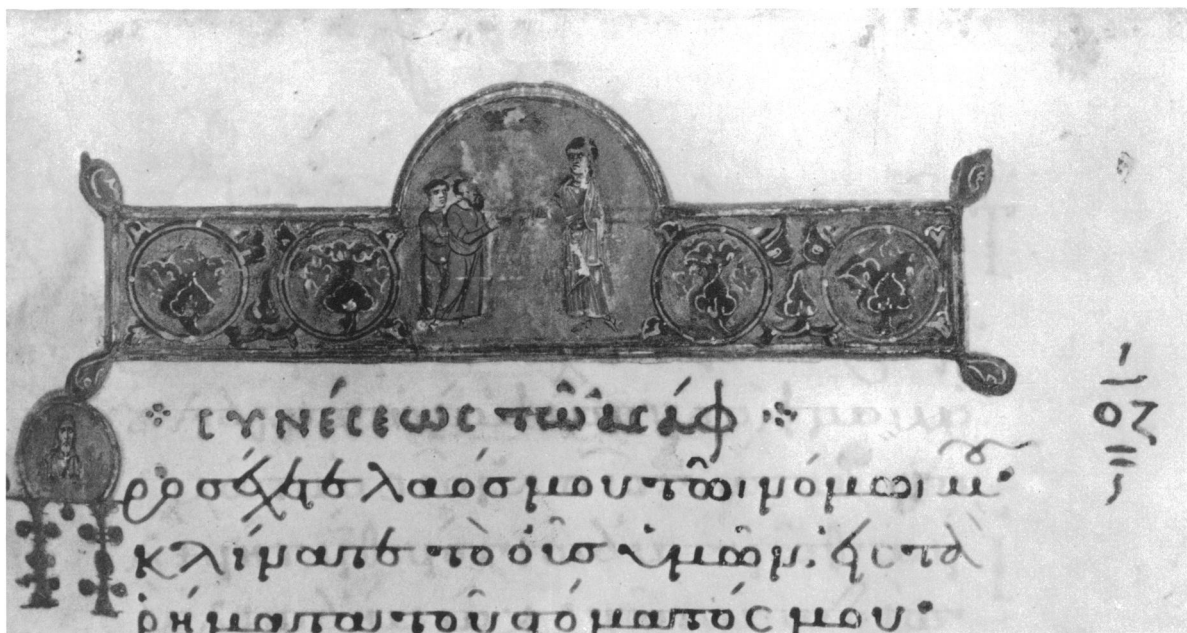 συνέσεως τῶ ἀσάφ
οζ
Προσέχετε λαός μου τῶι νόμωι μου
κλίνατε τὸ οὖς ὑμῶν. εἰς τὰ
ῥήματα τοῦ στόματός μου